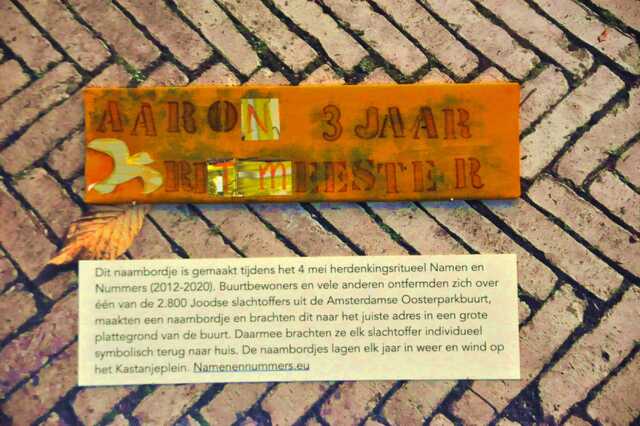 AARON, 3 JAAR
RITMEESTER
Dit naambordje is gemaakt tijdens het 4 mei herdenkingsritueel Namen en
Nummers (2012-2020). Buurtbewoners en vele anderen ontfermden zich over
één van de 2.800 Joodse slachtoffers uit de Amsterdamse Oosterparkbuurt,
maakten een naambordje en brachten dit naar het juiste adres in een grote
plattegrond van de buurt. Daarmee brachten ze elk slachtoffer individueel
symbolisch terug naar huis. De naambordjes lagen elk jaar in weer en wind op
het Kastanjeplein. Namenennummers.eu